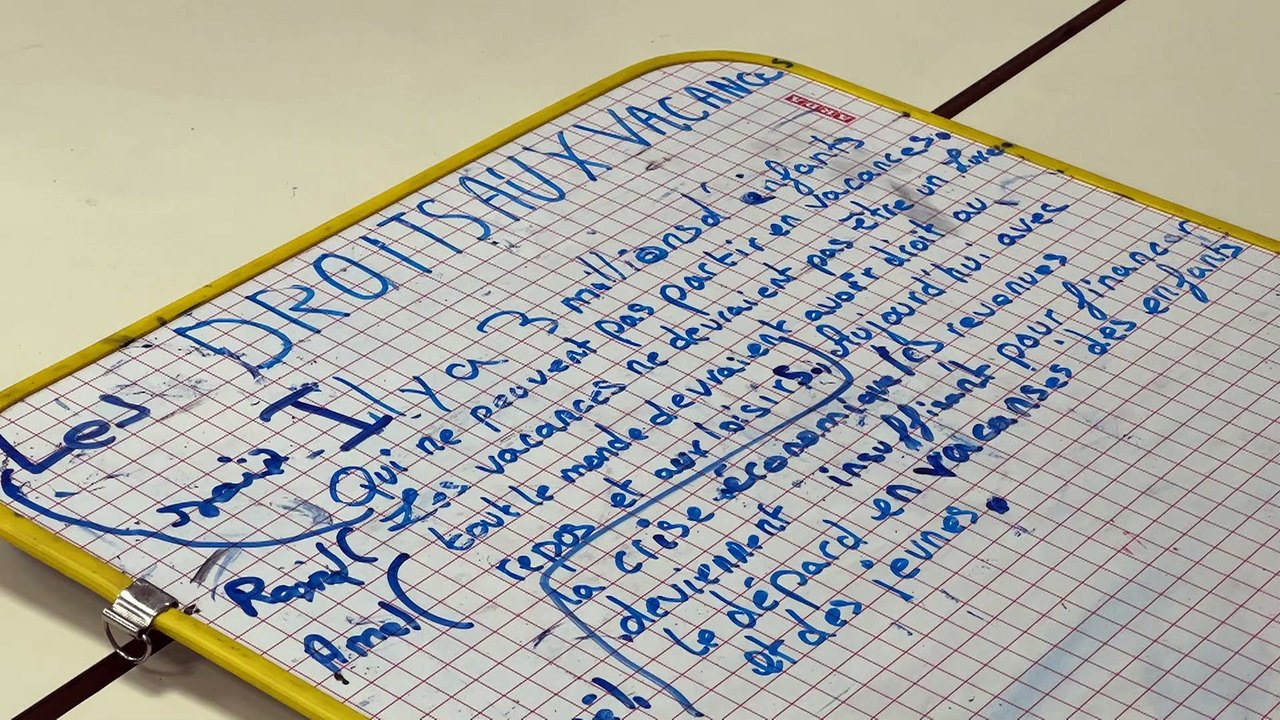 DROITS AUX VACANCES
AKDA
Les
soit I Il y a 3 millions d' enfants
Qui ne peuvent pas partir en vacances.
Les vacances ne devraient pas être un luxe.
tout le monde devraient avoir droit au
repos et aux loisirs. Aujourd'hui avec
la crise économique les revenues
deviennent insuffiant pour financer
le dépard en vacanses des enfants
et des jeunes.
Amel